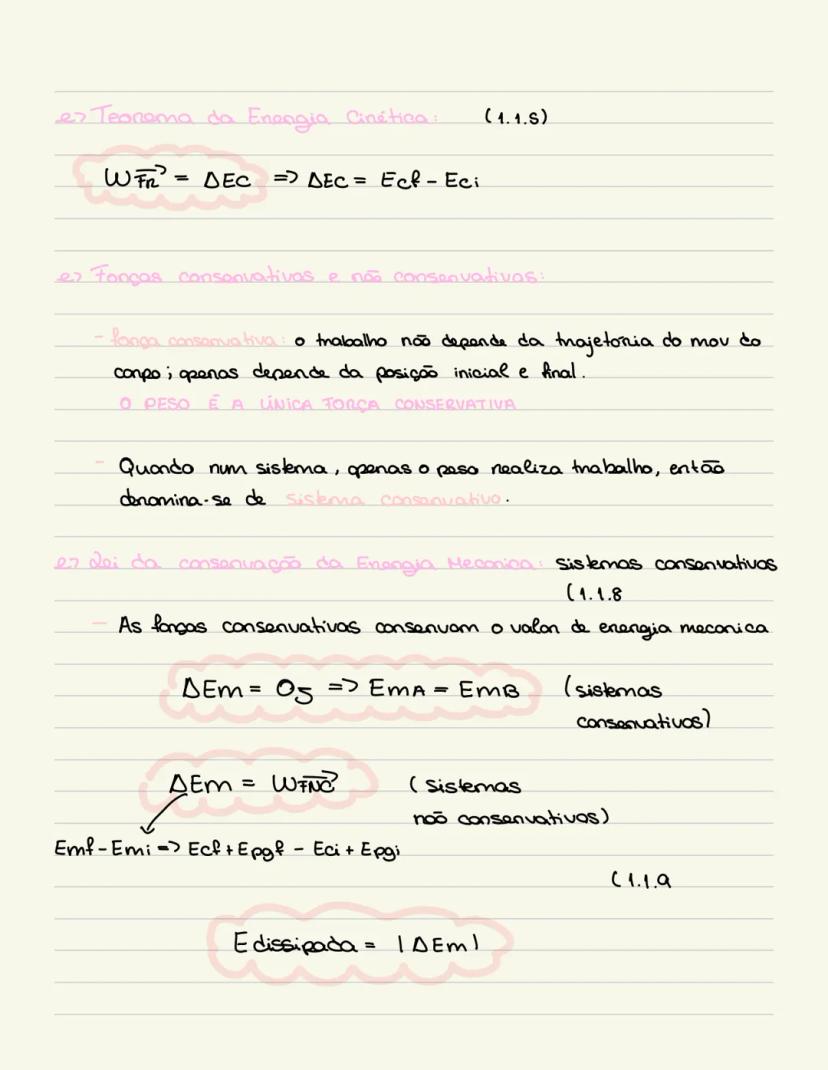 e> Teorema da Energia Cinética: (1.1.5)
W F⃗R = ΔEc => ΔEc = Ecf - Eci
e> Forças conservativas e não conservativas:
- força conservativa: o trabalho não depende da trajetoria do mov do
corpo; apenas depende da posição inicial e final.
O PESO É A ÚNICA FORÇA CONSERVATIVA
- Quando num sistema, apenas o peso realiza trabalho, então
denomina-se de sistema conservativo.
e> Lei da conservação da Energia Mecanica: sistemas conservativos
(1.1.8
- As forças conservativas conservam o valor de energia mecanica
ΔEm = 0J => EmA = EmB (sistemas
conservativos)
ΔEm = W F⃗NC (sistemas
não conservativos)
Emf - Emi => Ecf + Epgf - Eci + Epgi
(1.1.9
E dissipada = |ΔEm|